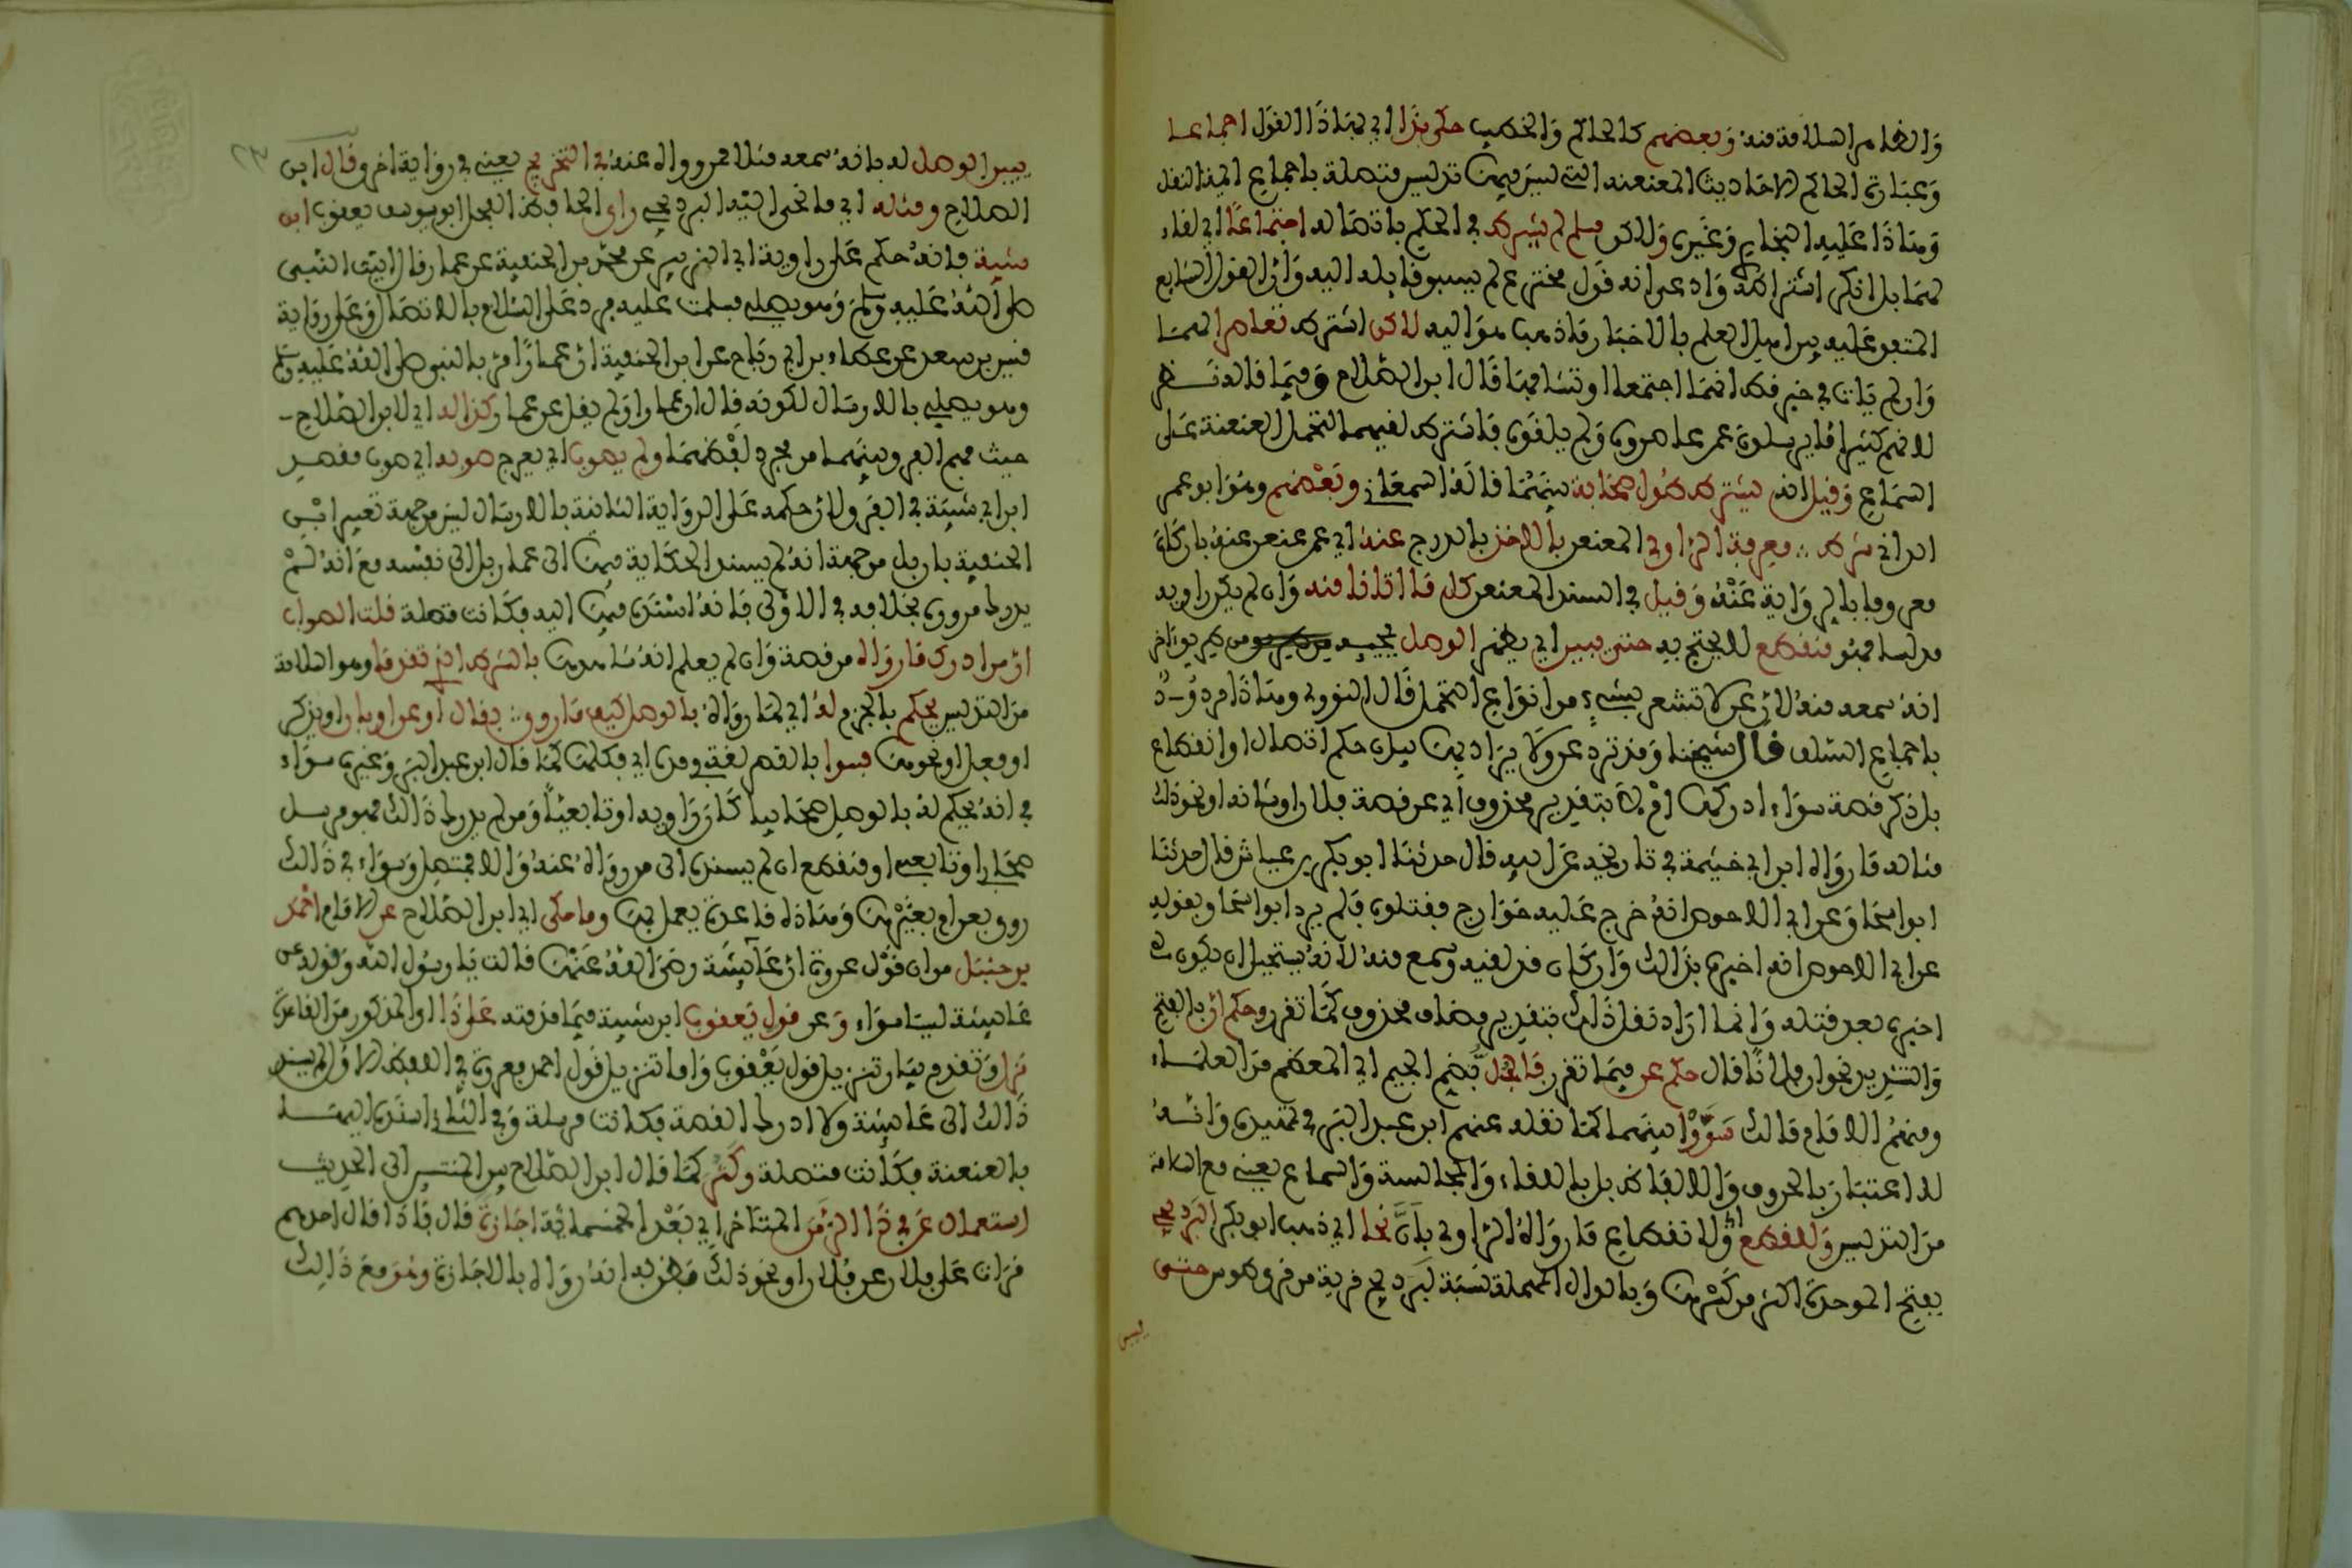 والظا من السلامة منه وبعضهم كالحاكم والخطيب حكى بذا اي بهاذا القول اجماعا
وعبارة الحاكم الاحاديث المعنعنه التي ليس فيها تدليس متصلة باجماع ايمة النقل
وهاذا عليه البخاري وغيره ولاكن مسلم لم يشرط في الحكم باتصاله اجتماعا اي لقاء
لهما بل انكر اشتراطه وادعى انه قول مخترع لم يسبق قايله اليه وان القول الشايع
المتفق عليه بين اهل العلم بالاخبار ما ذهب هو اليه لاكن اشترط تعاصرا لهما
وان لم يات في خبر قط انهما اجتمعا او تشافها قال ابن الصلاح وفيما قاله نظر
لانهم كثيرا ما يرسلون عمن عاصروه ولم يلقوه فاشترط لقيهما لتحمل العنعنة على
السماع وقيل انه يشترط طول صحابة بينهما قاله السمعاني وبعضهم وهو ابو عمرو
الداني شرط معرفة الراوي المعنعن بالاخذ بالدرج عنه اي عمن عنعن عنه بان كان
معروفا بالرواية عنه وقيل في السند المعنعن كل ما اتانا منه وان لم يكن راويه
مدلسا فهو منقطع لا يحتج به حتى يبين اي يظهر الوصل بمجيئه من طريق اخر
انه سمعه منه لان عن لا تشعر بشيء من انواع التحمل قال النووي وهاذا مردود
باجماع السلف قال شيخنا وقد ترد عن ولا يراد بها بيان حكم اتصال او انقطاع
بل ذكر قصة سواء ادركها ام لا بتقدير محذوف اي عن قصة فلان او شانه او نحو ذلك
مثاله ما رواه ابن ابي خيثمة في تاريخه عن ابيه قال حدثنا ابو بكر بن عياش قال حدثنا
ابو اسحاق عن ابي الاحوص انه خرج عليه خوارج فقتلوه فلم يرد ابو اسحاق بقوله
عن ابي الاحوص انه اخبره بذالك وان كان قد لقيه وسمع منه لانه يستحيل ان يكون
اخبره بعد قتله وانما اراد نقل ذالك بتقدير مضاف محذوف كما تقرر وحكم ان بالفتح
والتشديد نحو ان فلانا قال حكم عن فيما تقرر فالجل بضم الجيم اي المعظم من العلماء
ومنهم الامام مالك سووا بينهما كما نقله عنهم ابن عبد البر في تمهيده وانه
لا اعتبار بالحروف والالفاظ بل باللقاء والمجالسة والسماع يعني مع السلامة
من التدليس وللقطع اي وللانقطاع ما رواه الراوي بان نحا اي ذهب ابو بكر البرديجي
بفتح الموحدة اكثر من كسرها وبالدال المهملة نسبة لبرديج قرية من قرى طوس حتى
يبين
يبين الوصل له بانه سمعه مثلا ممن رواه عنه في التخريج يعني في رواية اخر وقال ابن
الصلاح ومثله اي ما نحى اليه البرديجي راى الحافظ الفحل ابو يوسف يعقوب ابن
شيبة فانه حكم على رواية ابي الزبير عن محمد بن الحنفية عن عمار قال اتيت النبي
صلى الله عليه وسلم وهو يصلي فسلمت عليه فرد علي السلام بالاتصال وعلى رواية
قيس بن سعد عن عطاء بن ابي رباح عن ابن الحنفية ان عمارا مر بالنبي صلى الله عليه وسلم
وهو يصلي بالارسال لكونه قال ان عمارا ولم يقل عن عمار كذا له اي لابن الصلاح
حيث فهم الفرق بينهما من مجرد لفظهما ولم يصوب اي يعرج صوبه اي صوب مقصد
ابن ابي شيبة في الفرق لان حكمه على الرواية الثانية بالارسال ليس من جهة تعبير ابن
الحنفية بان بل من جهة انه لم يسند الحكاية فيها الى عمار بل الى نفسه مع انه لم
يدرك مروره بخلافه في الاولى فانه اسند فيها اليه فكانت متصلة قلت الصواب
ان من ادرك ما رواه من قصة وان لم يعلم انه شاهدها بالشرط الذي تقدما وهو السلامة
من التدليس يحكم بالجزم له اي لما رواه بالوصل كيف ما روى بقال او عن او بان او بذكر
او فعل او نحوها فسوا بالقصر لغة في مده اي فكلها كما قال ابن عبد البر وغيره سواء
في انه يحكم له بالوصل صحابيا كان راويه او تابعيا ومن لم يدرك ذالك فهو مرسل
صحابي او تابعي او منقطع ان لم يسنده الى من رواه عنه والا فمتصل وسواء في ذالك
روى بعن او بغيرها وهاذه قاعدة يعمل بها وما حكى اي ابن الصلاح عن الامام احمد
بن حنبل من ان قول عروة ان عائشة رضي الله عنها قالت يا رسول الله وقوله عن
عائشة ليسا سواء وعن قول يعقوب ابن شيبة فيما قدمته على ذا المذكور من القاعدة
نزل وتقدم بيان تنزيل قول يعقوب واما تنزيل قول احمد فعروة في اللفظ الاول لم يسند
ذالك الى عائشة ولا ادرك القصة فكانت مرسلة وفي الثاني اسند اليها
بالعنعنة فكانت متصلة وكثر كما قال ابن الصلاح بين المنتسبين الى الحديث
استعمال عن في ذا الزمن المتاخر اي بعد الخمسمائة اجازة قال فاذا قال احدهم
قرات على فلان عن فلان او نحو ذلك فظن به انه رواه بالاجازة وهو مع ذالك